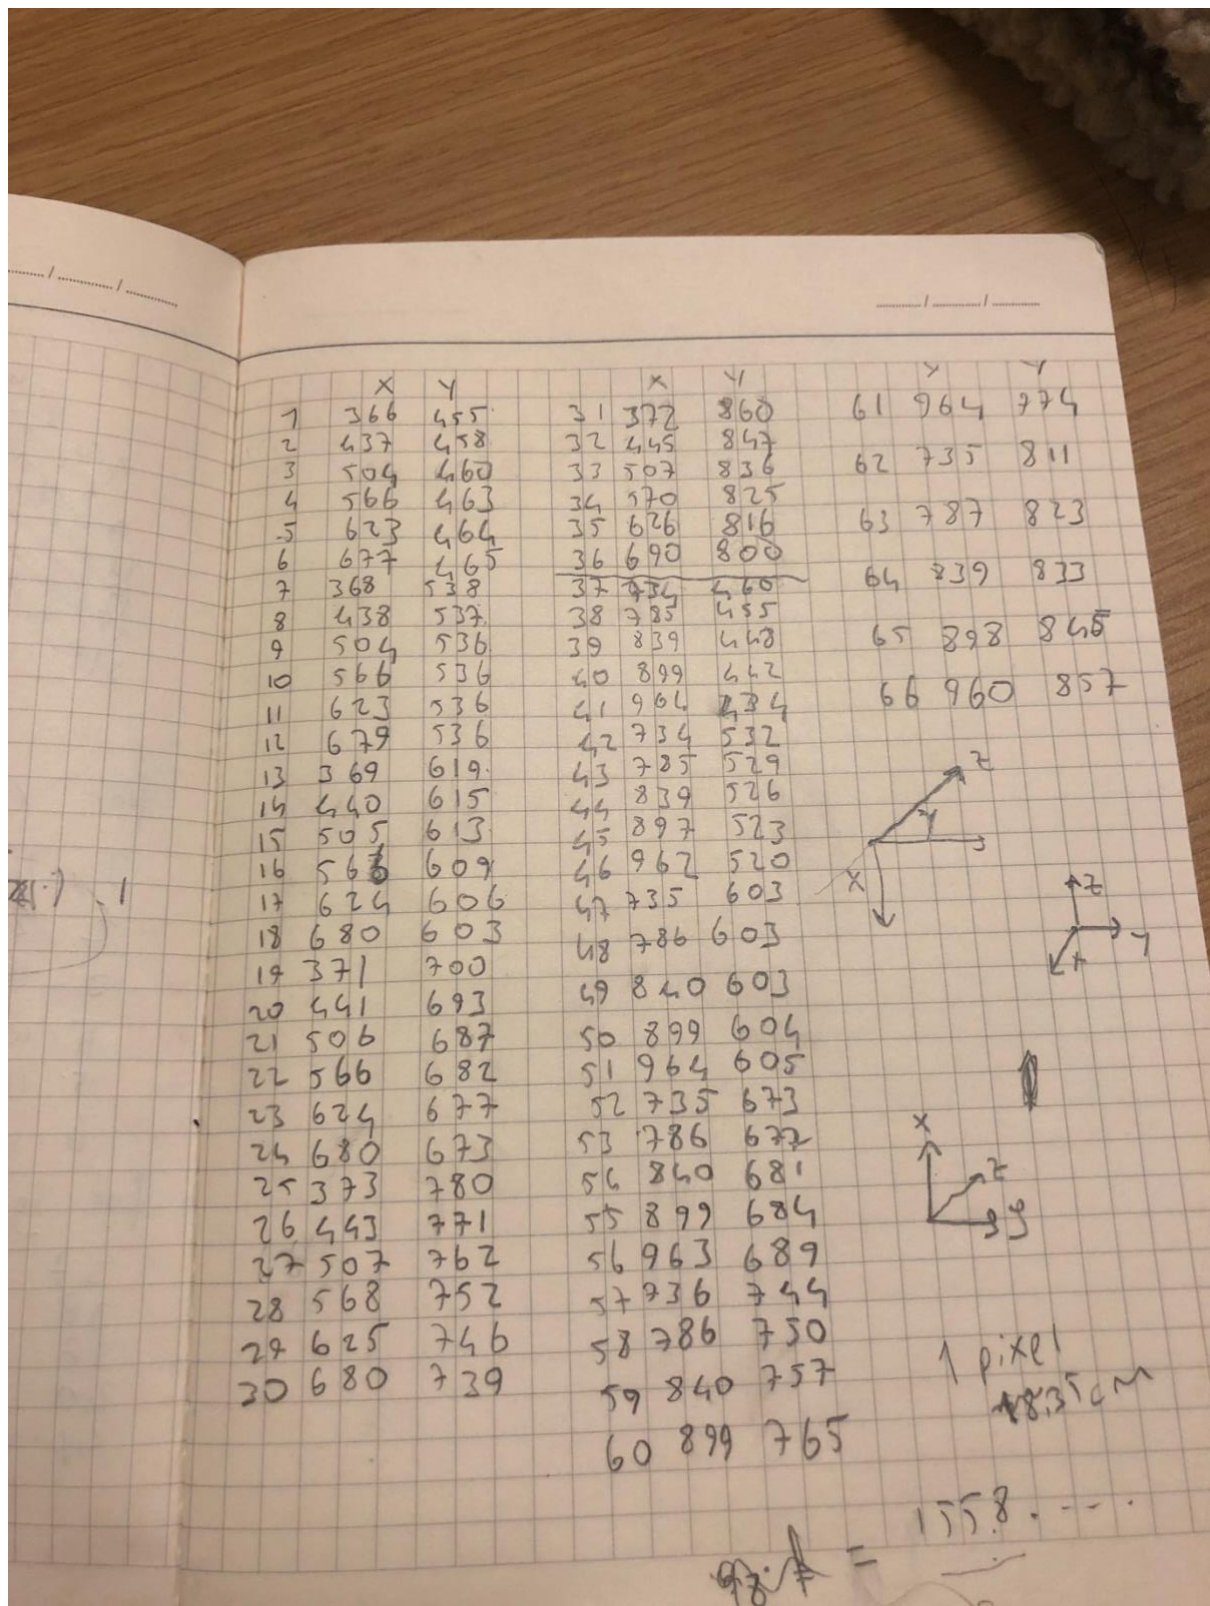 X Y
1 366 455
2 437 458
3 504 460
4 566 463
5 623 464
6 677 465
7 368 538
8 438 537
9 504 536
10 566 536
11 623 536
12 679 536
13 369 619
14 440 615
15 505 613
16 566 609
17 624 606
18 680 603
19 371 700
20 441 693
21 506 687
22 566 682
23 624 677
24 680 673
25 373 780
26 443 771
27 507 762
28 568 752
29 625 746
30 680 739
X Y
31 372 860
32 445 847
33 507 836
34 570 825
35 626 816
36 690 800
37 734 460
38 785 455
39 839 448
40 899 442
41 964 434
42 734 532
43 785 529
44 839 526
45 897 523
46 962 520
47 735 603
48 786 603
49 840 603
50 899 604
51 964 605
52 735 673
53 786 677
54 840 681
55 899 684
56 963 689
57 736 744
58 786 750
59 840 757
60 899 765
X Y
61 964 774
62 735 811
63 787 823
64 839 833
65 898 845
66 960 857
Z
Y
X
Z
Y
X
X
Z
y
1 pixel
8.35cm
= 1558. ....